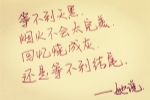 等不到天黑
烟火不会太完美
回忆烧成灰
还是等不到结尾
——她说